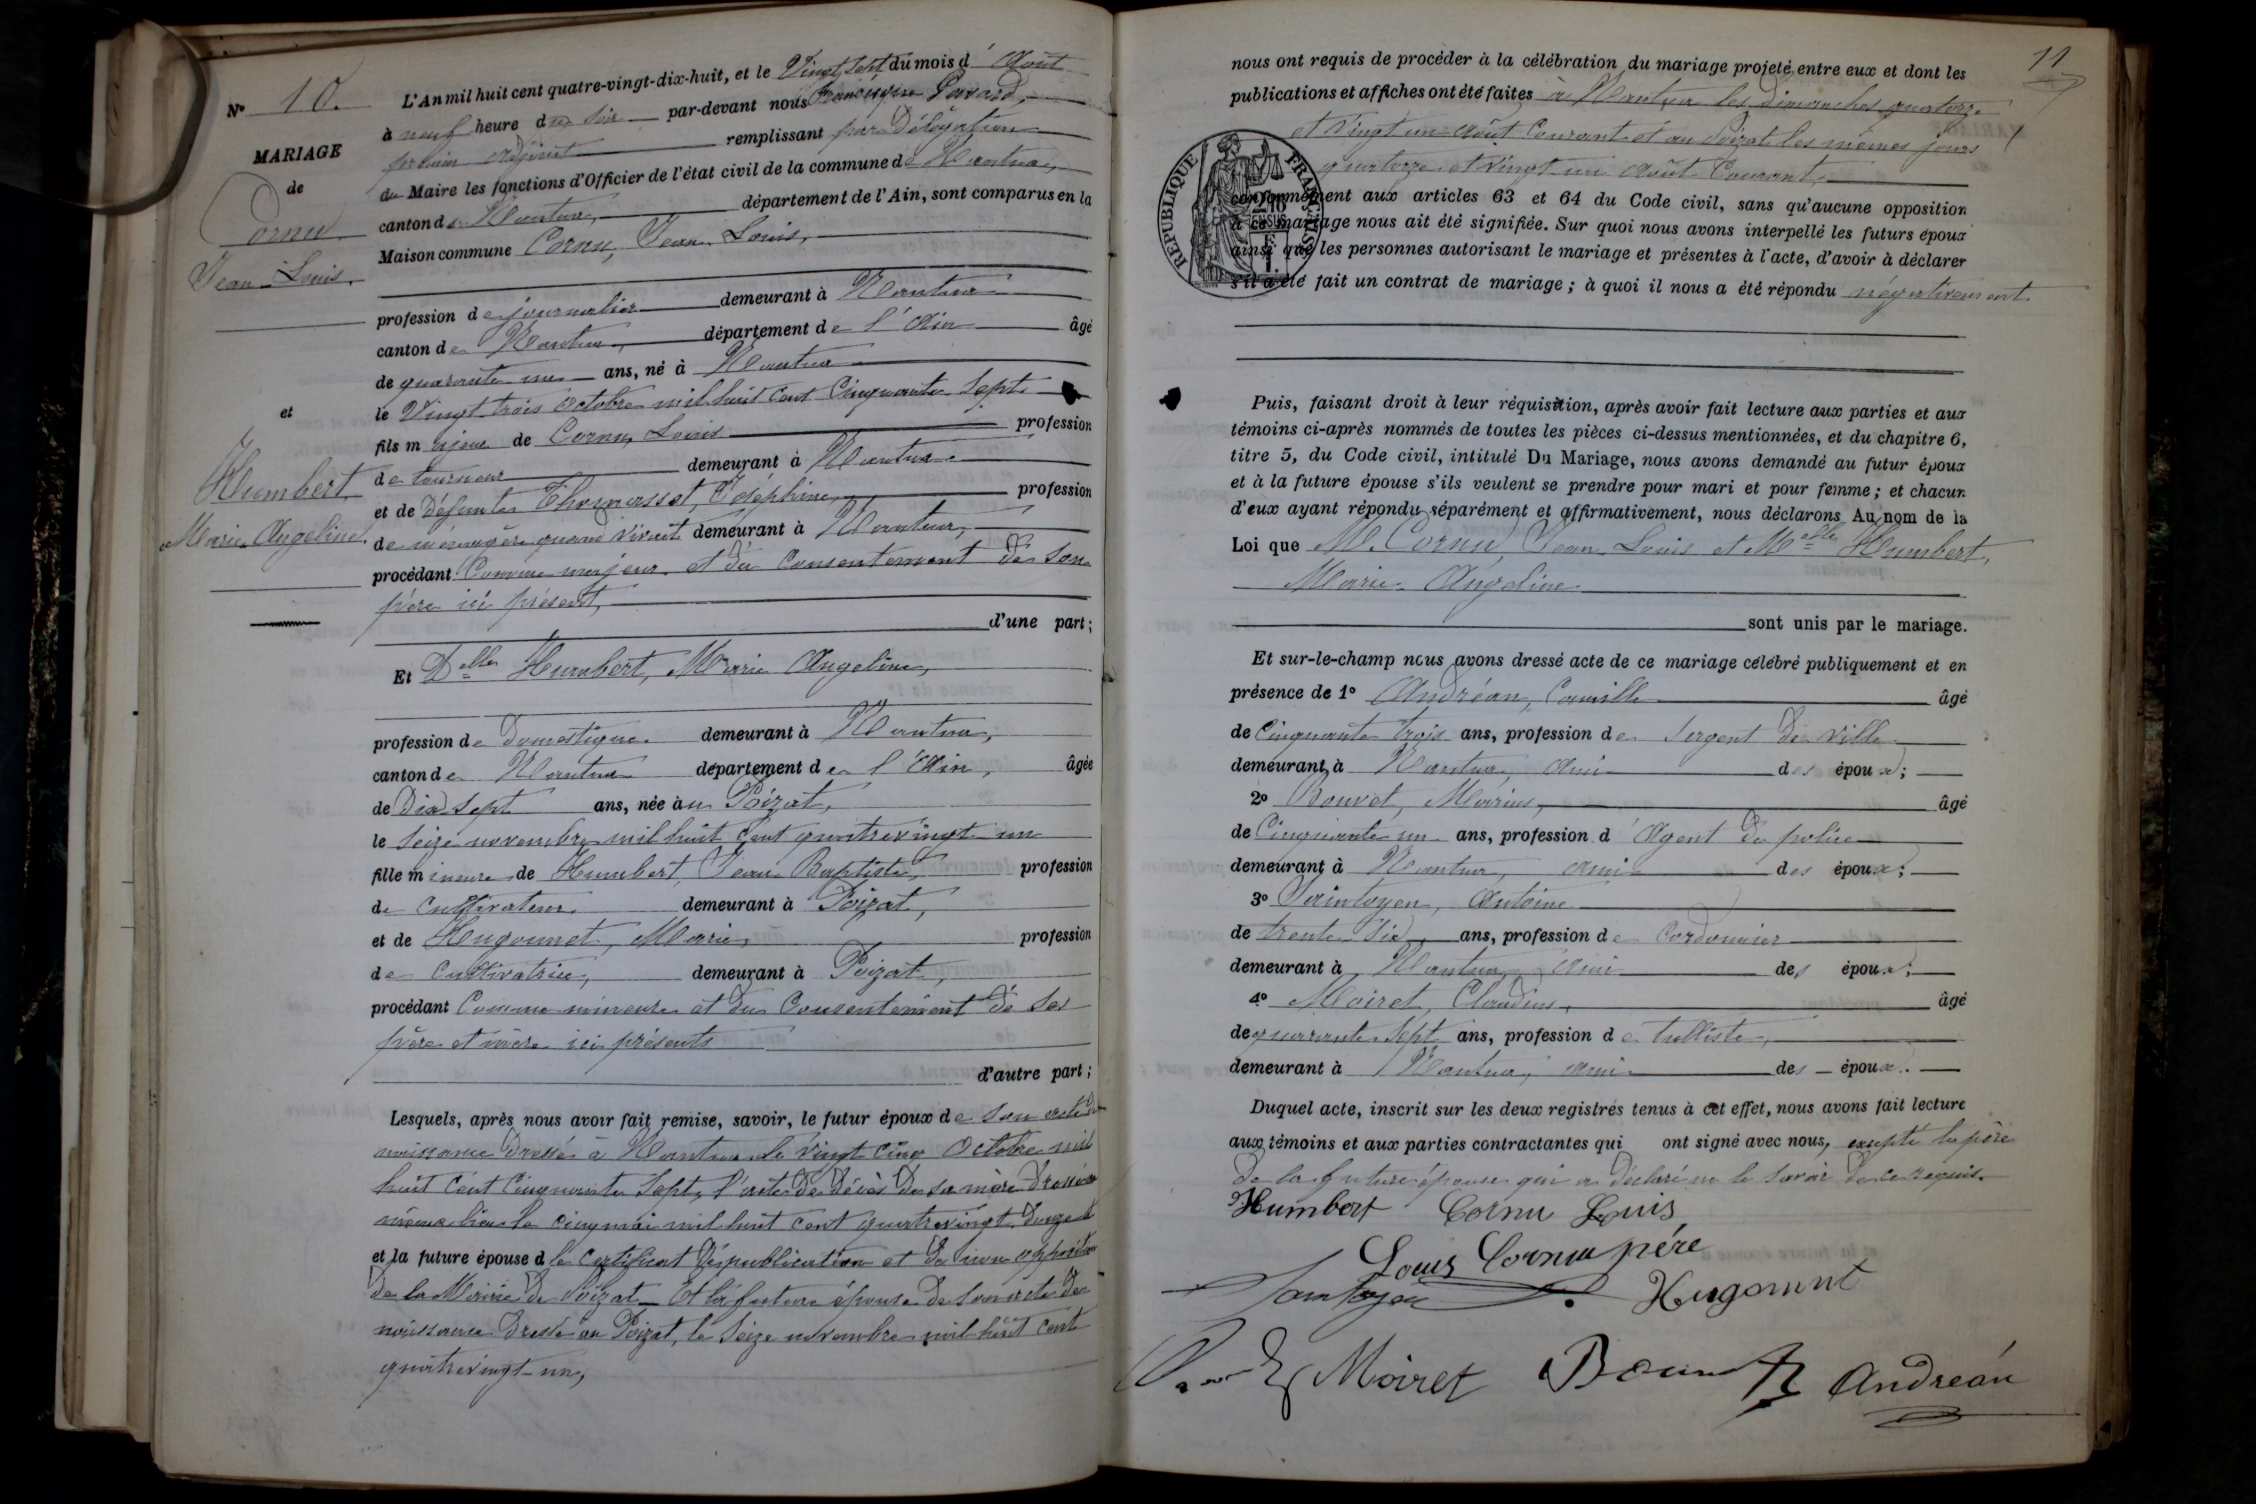 Nº 10.
MARIAGE
de
Cornu
Jean Louis.
et
Humbert
Marie Angeline.
L'An mil huit cent quatre-vingt-dix-huit, et le Vingt sept du mois d'Août
à neuf heure du soir par-devant nous Favard,
premier adjoint remplissant par Délégation
du Maire les fonctions d'Officier de l'état civil de la commune de Nantua,
canton de Nantua, département de l'Ain, sont comparus en la
Maison commune Cornu, Jean Louis,
profession de journalier demeurant à Nantua
canton de Nantua, département de l'Ain âgé
de quarante ans, né à Nantua
le Vingt trois Octobre mil huit cent Cinquante Sept
fils majeur de Cornu, Louis profession
de tourneur demeurant à Nantua
et de défunte Thomasset, Joséphine, profession
de ménagère quand vivait demeurant à Nantua,
procédant Comme majeur et du Consentement de son
père ici présent,
d'une part;
Et Delle Humbert, Marie Angeline,
profession de Domestique demeurant à Nantua,
canton de Nantua département de l'Ain, âgée
de Dix sept ans, née au Poizat,
le Seize novembre mil huit cent quatrevingt un
fille mineure de Humbert, Jean Baptiste, profession
de Cultivateur demeurant à Poizat,
et de Hugonnet, Marie, profession
de Cultivatrice, demeurant à Poizat,
procédant Comme mineure et du Consentement de ses
père et mère ici présents
d'autre part;
Lesquels, après nous avoir fait remise, savoir, le futur époux de son acte de
naissance Dressé à Nantua le Vingt cinq Octobre mil
huit cent Cinquante Sept, l'acte de décès de sa mère Dressé au
même lieu le cinq mai mil huit cent quatrevingt Douze
et la future épouse d le Certificat de publication et de non opposition
de la Mairie de Poizat. Et la future épouse de son acte de
naissance Dressé au Poizat, le Seize novembre mil huit cent
quatrevingt-un,
11
nous ont requis de procéder à la célébration du mariage projeté entre eux et dont les
publications et affiches ont été faites à Nantua les Dimanches quatorze
et Vingt un Août Courant et au Poizat les mêmes jours
quatorze et Vingt un Août Courant,
RÉPUBLIQUE FRANÇAISE
conformément aux articles 63 et 64 du Code civil, sans qu'aucune opposition
à ce mariage nous ait été signifiée. Sur quoi nous avons interpellé les futurs époux
ainsi que les personnes autorisant le mariage et présentes à l'acte, d'avoir à déclarer
s'il a été fait un contrat de mariage; à quoi il nous a été répondu négativement.
Puis, faisant droit à leur réquisition, après avoir fait lecture aux parties et aux
témoins ci-après nommés de toutes les pièces ci-dessus mentionnées, et du chapitre 6,
titre 5, du Code civil, intitulé Du Mariage, nous avons demandé au futur époux
et à la future épouse s'ils veulent se prendre pour mari et pour femme; et chacun
d'eux ayant répondu séparément et affirmativement, nous déclarons Au nom de la
Loi que M. Cornu, Jean Louis et Melle Humbert,
Marie Angeline
sont unis par le mariage.
Et sur-le-champ nous avons dressé acte de ce mariage célébré publiquement et en
présence de 1º Andréan, Camille âgé
de Cinquante trois ans, profession de Sergent de Ville
demeurant à Nantua, ami des époux;
2º Bouvet, Marius, âgé
de Cinquante un ans, profession d'Agent de police
demeurant à Nantua, ami des époux;
3º Saintoyen, Antoine
de trente Six ans, profession de Cordonnier
demeurant à Nantua ami des époux;
4º Moiret, Claudius, âgé
de quarante Sept ans, profession de tulliste,
demeurant à Nantua, ami des époux.
Duquel acte, inscrit sur les deux registres tenus à cet effet, nous avons fait lecture
aux témoins et aux parties contractantes qui ont signé avec nous, excepté le père
de la future épouse qui a déclaré ne le savoir de ce requis.
Humbert Cornu Louis
Louis Cornu père
Saintoyen Hugonnet
Moiret Bouvet Andréan